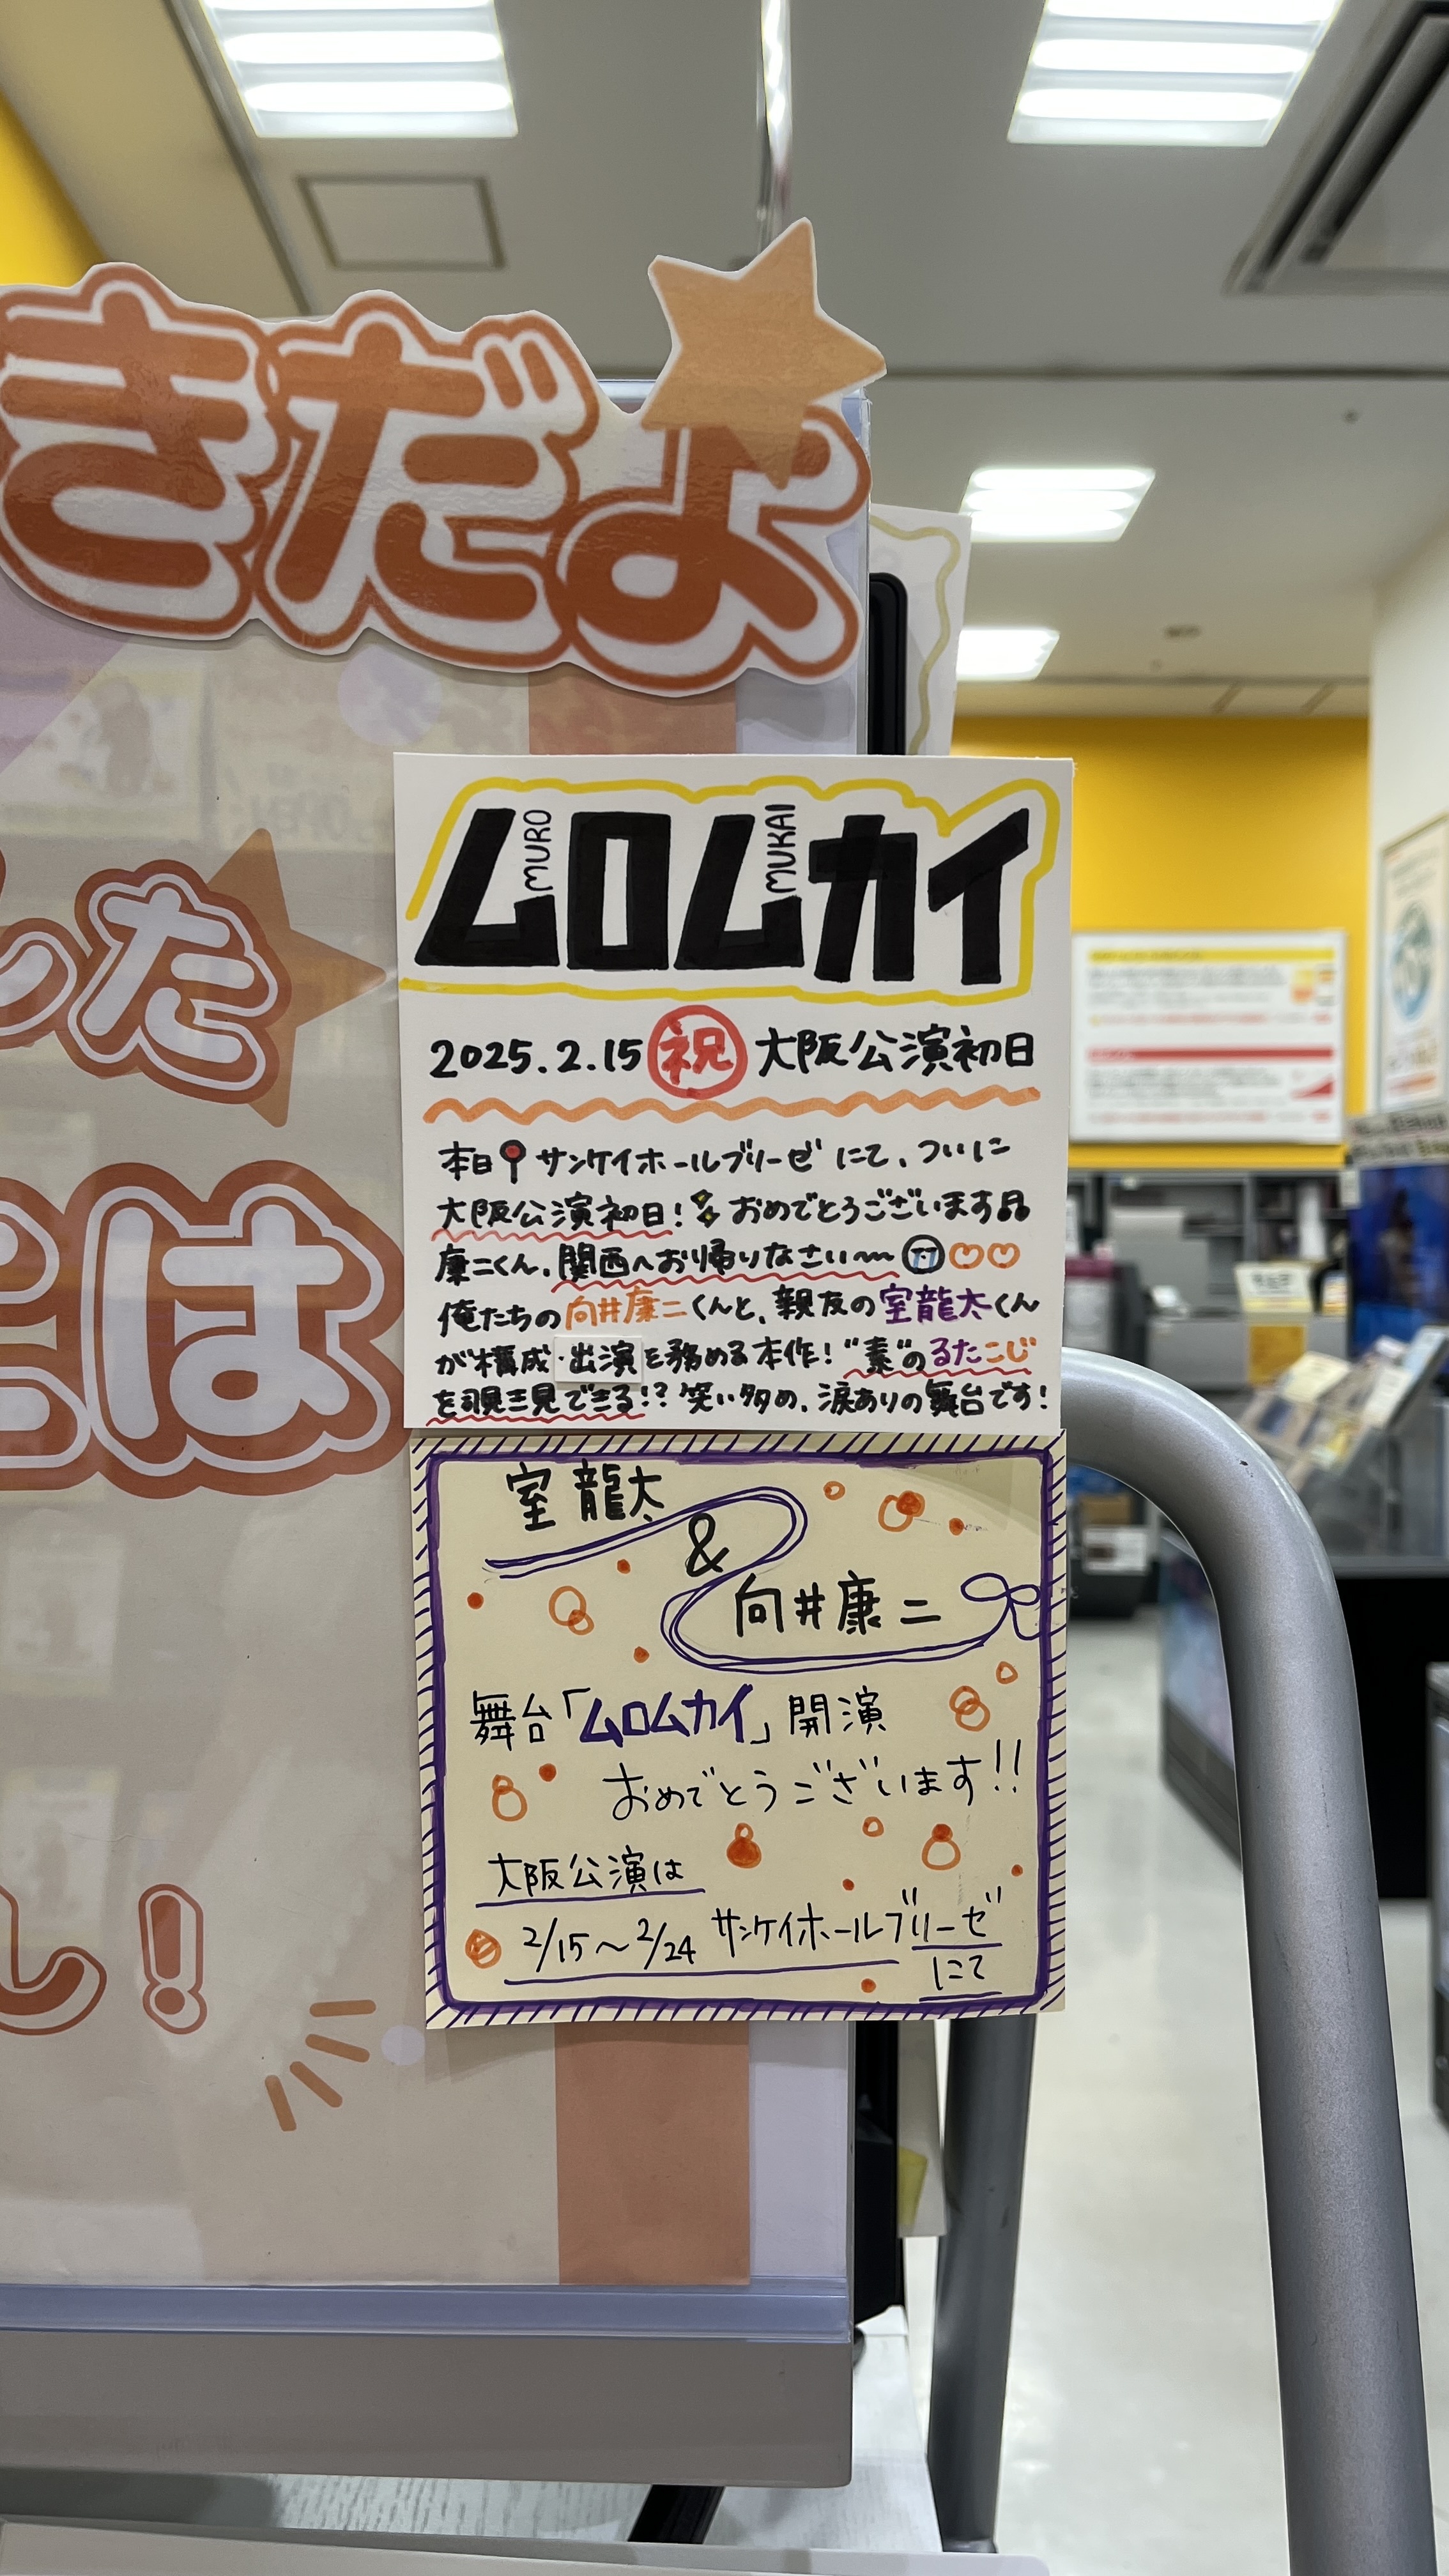 きだよ
した
には
し!
ムロムカイ
MURO
MUKAI
2025.2.15 祝 大阪公演初日
本日 サンケイホールブリーゼ にて、ついに
大阪公演初日! おめでとうございます
康二くん、関西へおかえりなさい〜
俺たちの向井康二くんと、親友の室龍太くん
が構成・出演を務める本作! "素"のるたこじ
を覗き見できる!? 笑い多め、涙ありの舞台です!
室 龍太
&
向井康二
舞台「ムロムカイ」開演
おめでとうございます!!
大阪公演は
2/15〜2/24 サンケイホールブリーゼ
にて